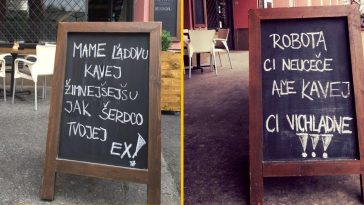 MAME ĽADOVU
KAVEJ
ŽIMNEJŠEJŠU
JAK ŠERDCO
TVOJEJ
EX!
ROBOTA
CI NEUCEČE
ALE KAVEJ
CI VICHLADNE
!!!